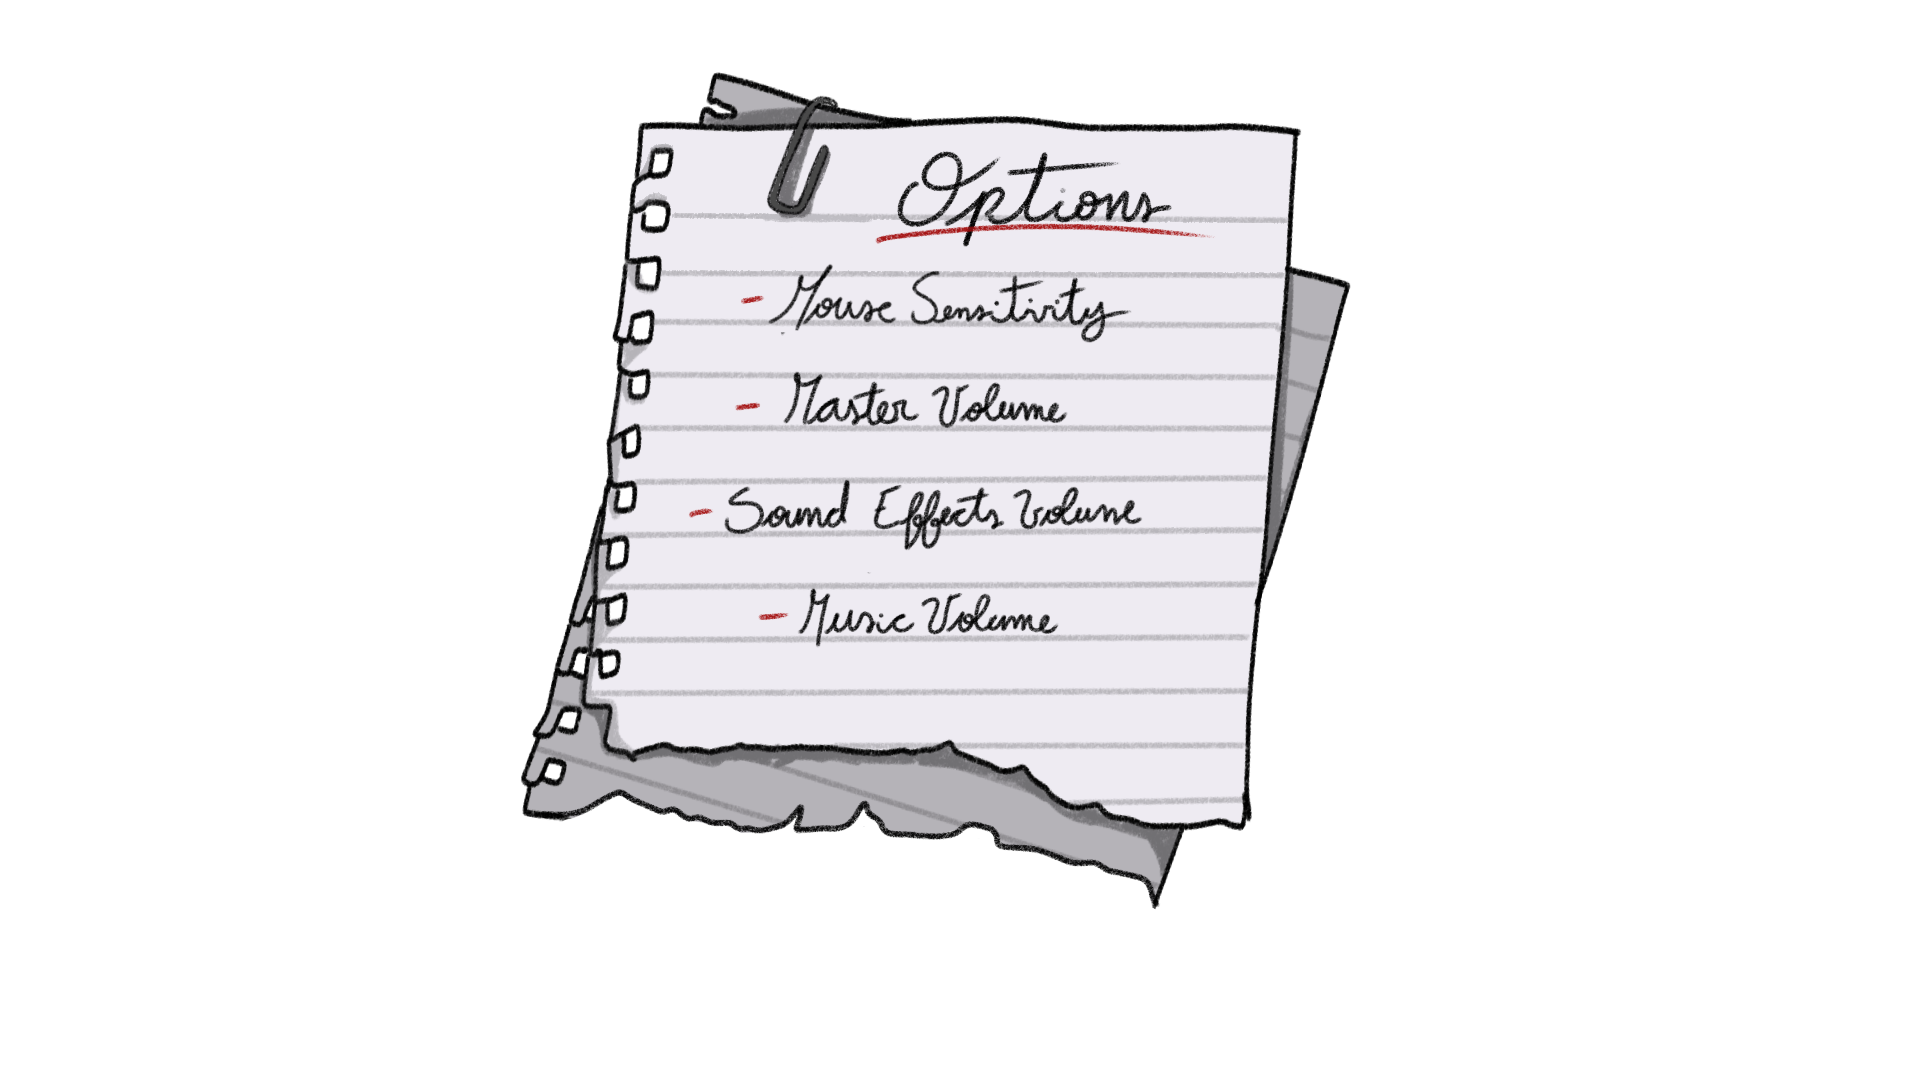 Options
- Mouse Sensitivity
- Master Volume
- Sound Effects Volume
- Music Volume